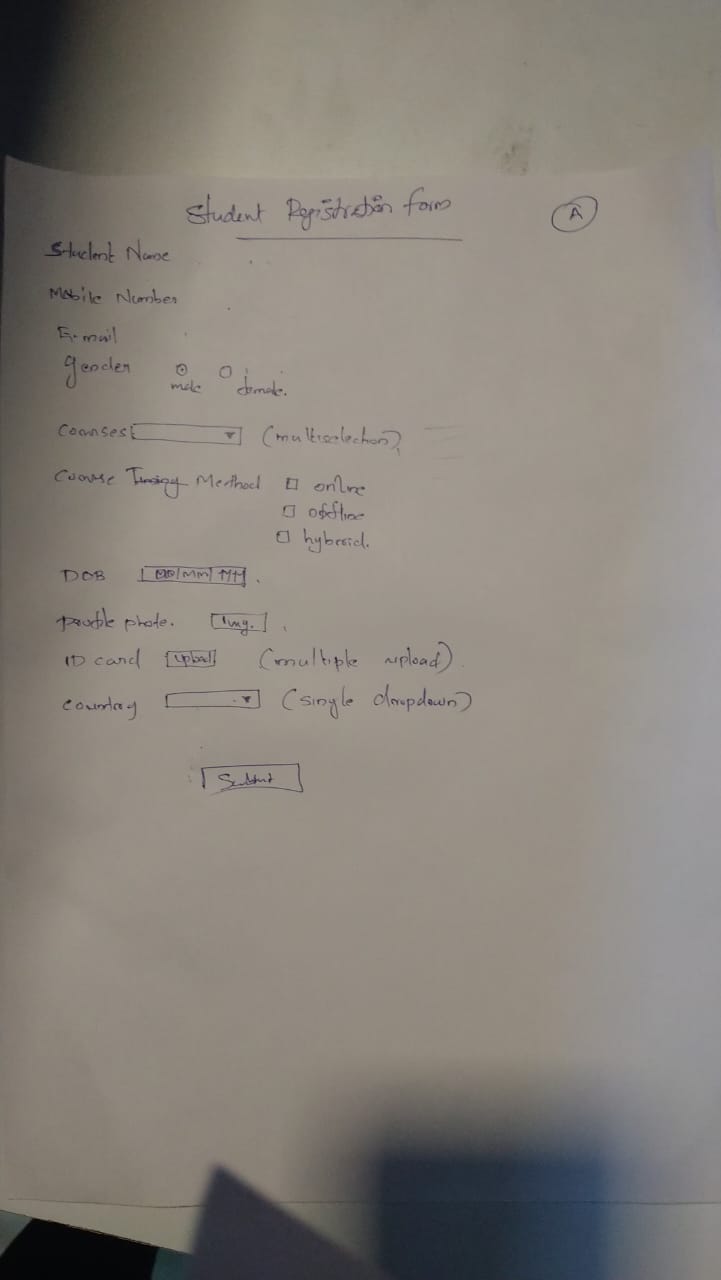 Student Registration form
A
Student Name
Mobile Number
E-mail
gender
male female.
Courses (multiselection)
Course Timing Method online
offline
hybrid.
DOB DD/MM/YYYY.
profile photo. Img.
ID card upload (multiple upload)
country (single dropdown)
Submit